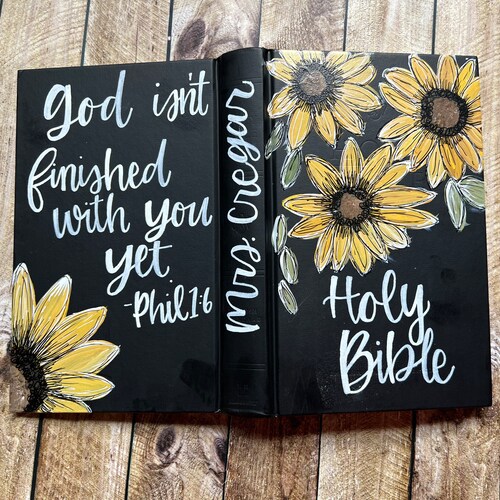 God isn't
finished
with you
yet
-Phil 1:6
Mrs. Cregar
Holy
Bible